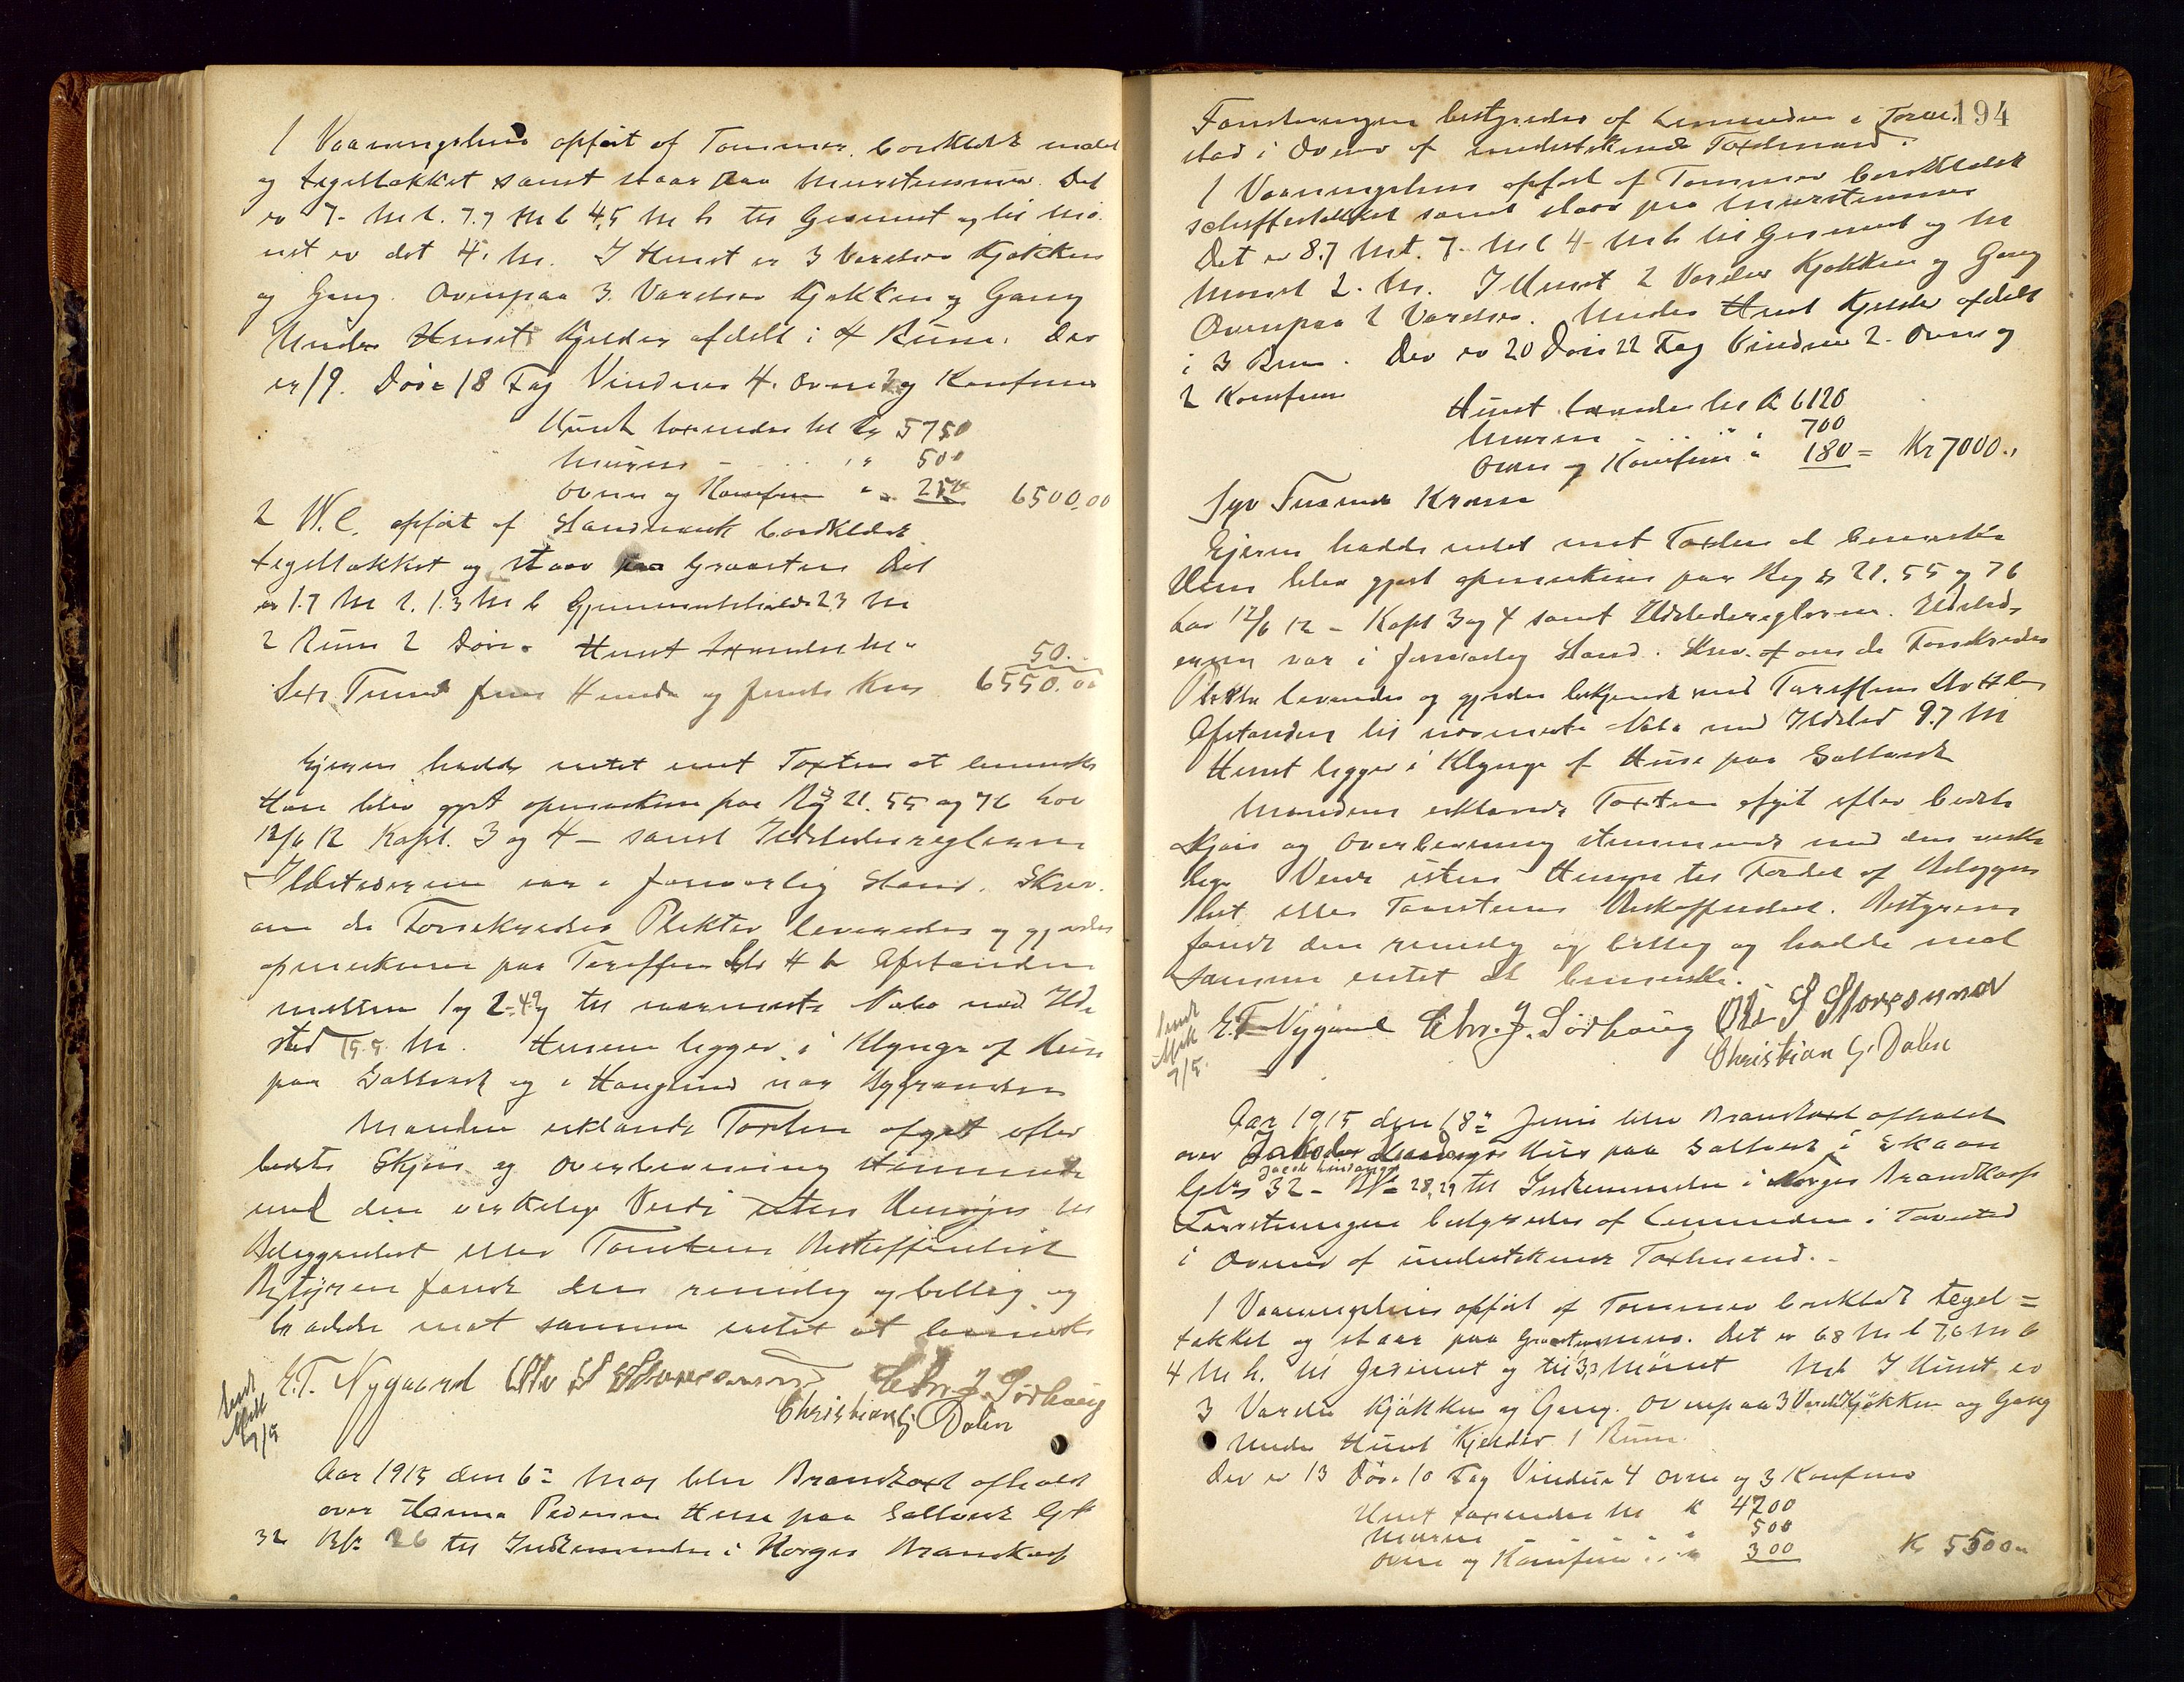 1 Vaaningshus opført af Tømmer bordklædt malet
og tegeltækket samt staar paa Murstensmur. Det
er 7. M l. 7.7 M b 4,5 M h til Gesimset og til Mø-
net er det 4. M. I Huset er 3 Værelser Kjøkken
og Gang. Ovenpaa 3. Værelser Kjøkken og Gang
Under Huset Kjelder afdelt i 4 Rum. Der
er 19. Døre 18 Fag Vinduer 4. Ovne 2 og Komfurer
Huset taxeredes til Kr 5750
Muren - " 500
Ovne og Komfurer " 250 6500,00
2 W.C. opført af Standverk bordklædt
tegeltækket og staar paa Graasten Det
er 1.7 M l. 1.3 M b Gjennemsnitshøide 2,3 M
2 Rum 2 Døre. Huset taxeredes til " 50..
Sex Tusind fem Hundr og femti Kr 6550.00
Ejeren hadde intet mot Taxten at bemerke
Han blev gjort opmerksom paa Rg § 21. 55 og 76 Lov
12/6 12 Kapt. 3 og 4 - samt Ildstedsreglerne
Ildstederne var i forsvarlig Stand. Skriv.
om de Forsikredes Plikter leveredes og gjordes
opmerksom paa Tariffen Lit H b Afstanden
mellem 1 og 2 - 4.9 og til nærmeste Nabo med Ild-
sted 15.5 M. Husene ligger i Klynge af Huse
paa Saltverk og i Haugesund nær Bygrændsen
Manden erklærede Taxten afgit efter
bedste Skjøn og Overbevisning stemmende
med den virkelige Verdi uten Hensyn til
Beliggenhet eller Tomtens Beskaffenhet
Bestyreren fandt den rimelig og billig og
hadde mot samme intet at bemerke
E.T. Nygaard Ole S Storesund Chr. J. Sørhaug
Christian G. Dalen
Sendt
Afsk
7/5
Aar 1915 den 6te Maj blev Brandtaxt afholdt
over Hanna Pedersens Huse paa Saltverk G.No
32 Bf. 26 til Indlemmelse i Norges Brandkasse
194
Forretningen bestyredes af Lensmanden i Torve-
stad i Overvær af undertegnede Taxtmænd.
1 Vaaningshus opført af Tømmer bordklædt
skiffertækket samt staar paa Murstensmur
Det er 8.7 M l. 7. M b 4 - M h til Gesimset og til
Mønet 2. M. I Huset 2 Værelser Kjøkken og Gang
Ovenpaa 2 Værelser. Under Huset Kjelder afdelt
i 3 Rum. Der er 20 Døre 22 Fag Vinduer 2. Ovne og
2 Komfurer
Huset taxeredes til Kr 6120
Muren - " " 700
Ovne og Komfurer " 180 = Kr 7000..
Syv Tusinde Kroner
Ejeren hadde intet mot Taxten at bemerke
Den blev gjort opmerksom paa Reg § 21. 55 og 76
Lov 12/6 12 - Kapt 3 og 4 samt Ildstedsreglerne. Ildsted-
erne var i forsvarlig Stand. Skriv. om de Forsikredes
Plikter leveredes og gjordes bekjendt med Tariffens Lit H b
Afstanden til nærmeste Nabo med Ildsted 9.7 M
Huset ligger i Klynge af Huse paa Saltverk
Mændene erklærede Taxten afgit efter bedste
Skjøn og Overbevisning stemmende med den virke-
lige Verdi uten Hensyn til Fordel af Beliggen-
het eller Tomtens Beskaffenhet. Bestyreren
fandt den rimelig og billig og hadde mod
samme intet at bemerke.
E.T. Nygaard Chr. J. Sørhaug Ole S Storesund
Christian G. Dalen
Sendt
Afsk
7/5.
Aar 1915 den 18de Juni blev Brandtaxt afholdt
over Hus paa Saltverk i Skaare
Gbr 32 - No 28,29 til Indlemmelse i Norges Brandkasse
Forretningen bestyredes af Lensmanden i Torvestad
i Overvær af undertegnede Taxtmænd. -
1 Vaaningshus opført af Tømmer bordklædt tegel=
tækket og staar paa Graastensmur. Det er 6.8 M l 7,6 M b
4 M h. til Gesimset og til 3,3 Mønet I Huset er
3 Værelser Kjøkken og Gang. Ovenpaa 3 Værelser Kjøkken og Gang
Under Huset Kjelder 1 Rum.
Der er 13 Døre 10 Fag Vinduer 4 Ovne og 3 Komfurer
Huset taxeredes til Kr 4700
Muren " " 500
Ovne og Komfurer " " 300 Kr 5500